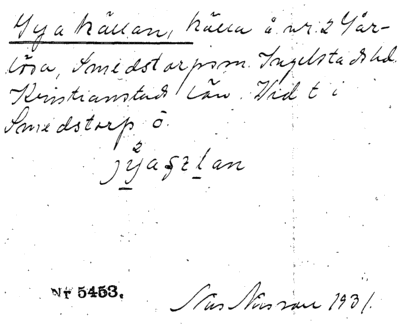 Gyakällan, källa å nr. 2 Går-
lösa, Smedstorps sn. Ingelstads hd.
Kristianstads län. Vid t i
Smedstorp ö.
Nr 5453.
Nils Nilsson 1931.